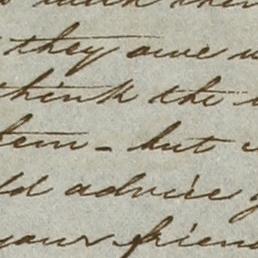 they owe
think the
tem - but
ld advise
your frien